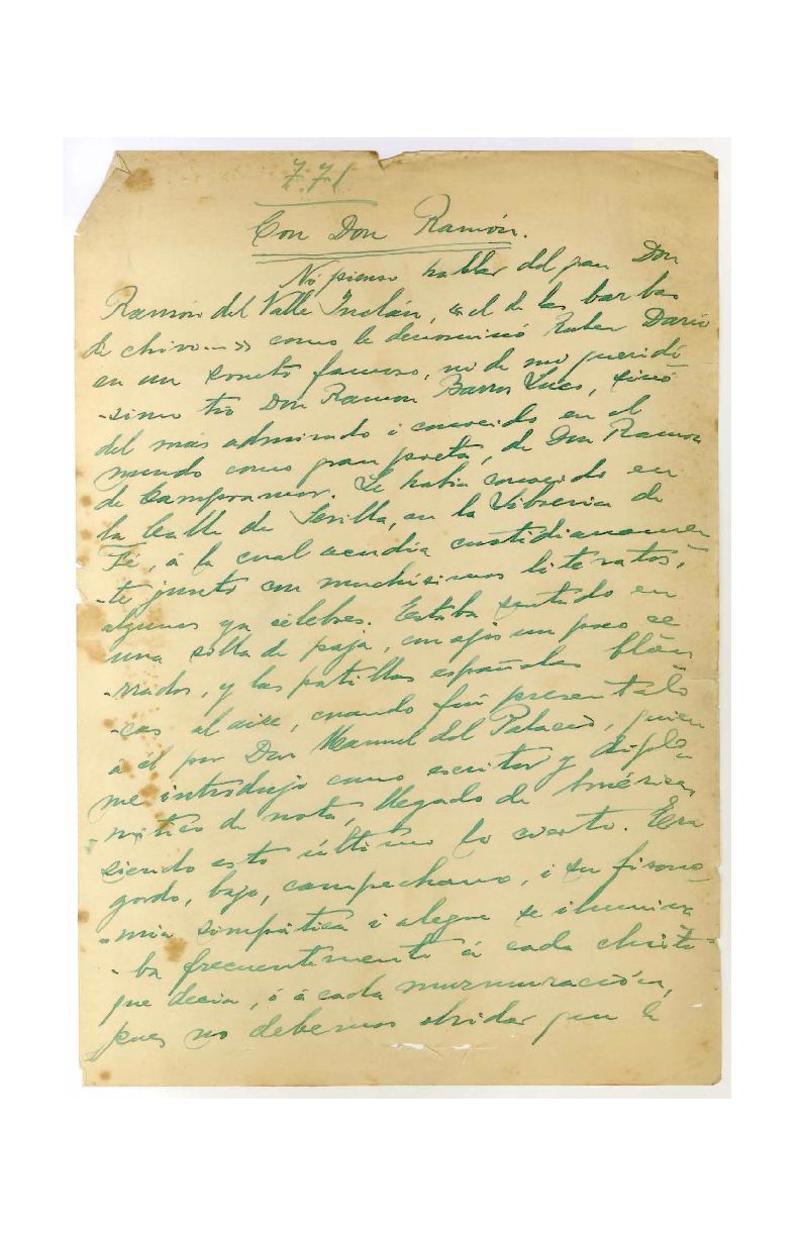 771
Con Don Ramón.
No pienso hablar del gran Don
Ramón del Valle Inclán, «el de las barbas
de chivo...» como le denominó Ruben Dario
en un soneto famoso, ni de mi queridi
-simo tio Don Ramon Barros Luco, sinó
del más admirado i conocido en el
mundo como gran poeta, de Don Ramon
de Campoamor. Le habia conocido en
la Calle de Sevilla, en la Libreria de
Fé, á la cual acudia cuotidianamen
-te junto con muchisimos literatos,
algunos ya célebres. Estaba sentado en
una silla de paja, con ojos un poco ce
-rrados, y las patillas españolas blan
-cas al aire, cuando fui presentado
a él por Don Manuel del Palacio, quien
me introdujo como escritor y diplo
-mático de nota, llegado de América,
siendo esto último lo cierto. Era
gordo, bajo, campechano, i su fisono
-mia simpática i alegre se ilumina
-ba frecuentemente á cada chiste
que decia, ó á cada murmuración,
pues no debemos olvidar que le